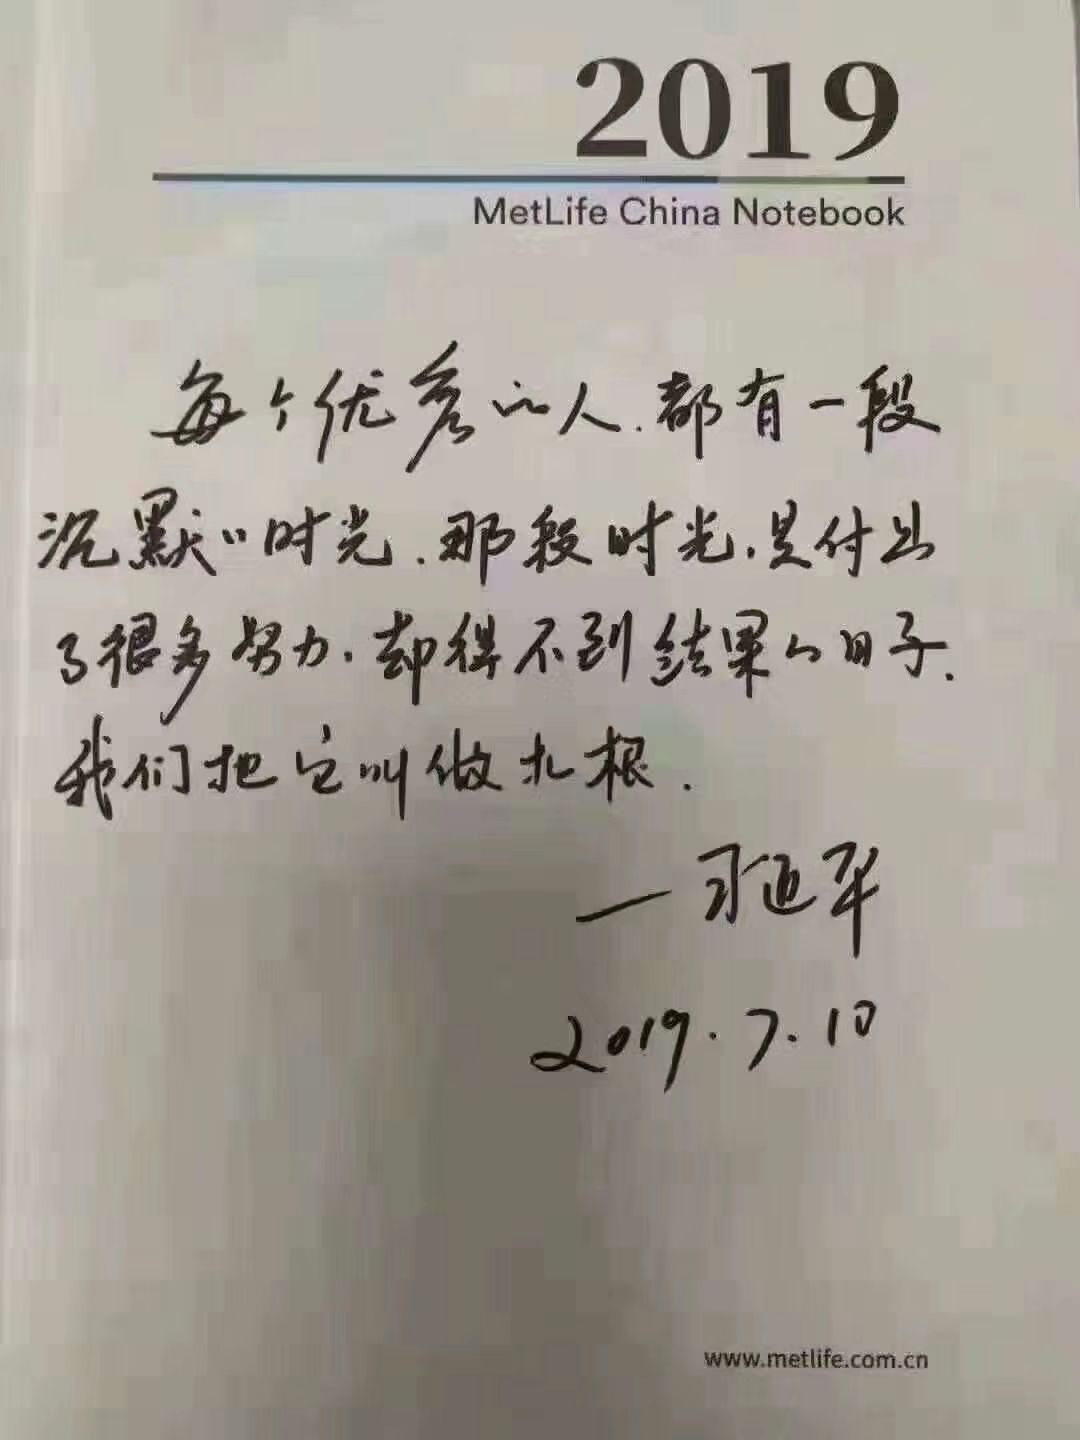 2019
MetLife China Notebook
每个优秀的人.都有一段
沉默的时光.那段时光.是付出
了很多努力.却得不到结果的日子.
我们把它叫做扎根.
—习近平
2019.7.10
www.metlife.com.cn